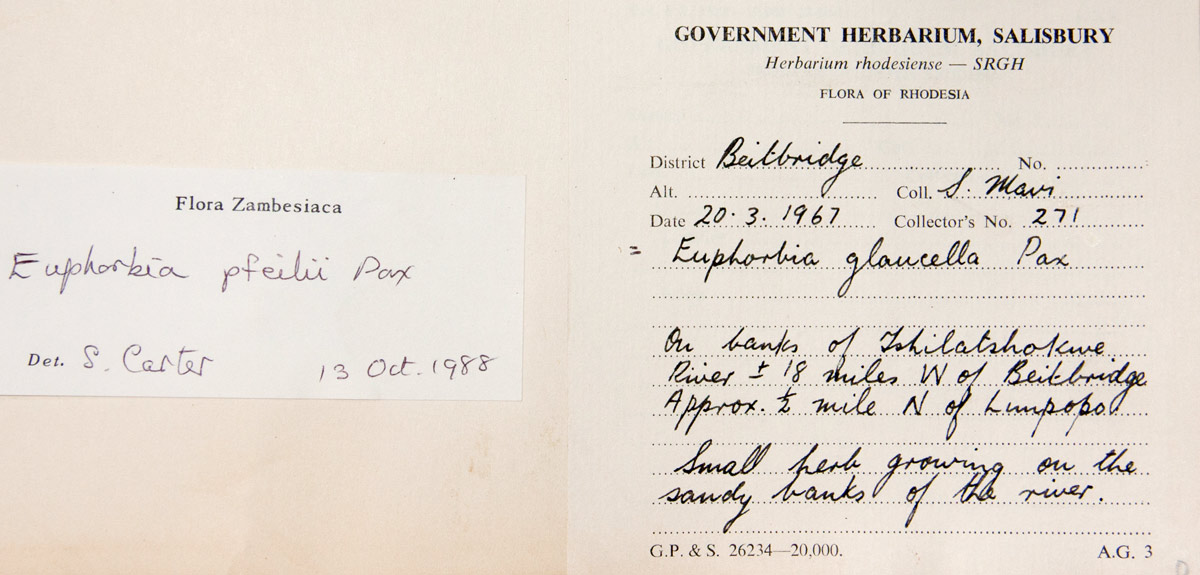 Flora Zambesiaca
Euphorbia pfeilii Pax
Det. S. Carter 13 Oct. 1988
GOVERNMENT HERBARIUM, SALISBURY
Herbarium rhodesiense — SRGH
FLORA OF RHODESIA
District Beitbridge No.
Alt. Coll. S. Mavi
Date 20.3.1967 Collector's No. 271
= Euphorbia glaucella Pax
On banks of Tshilatshokwe
River ± 18 miles W of Beitbridge
Approx. ½ mile N of Limpopo.
Small herb growing on the
sandy banks of the river.
G.P. & S. 26234—20,000. A.G. 3